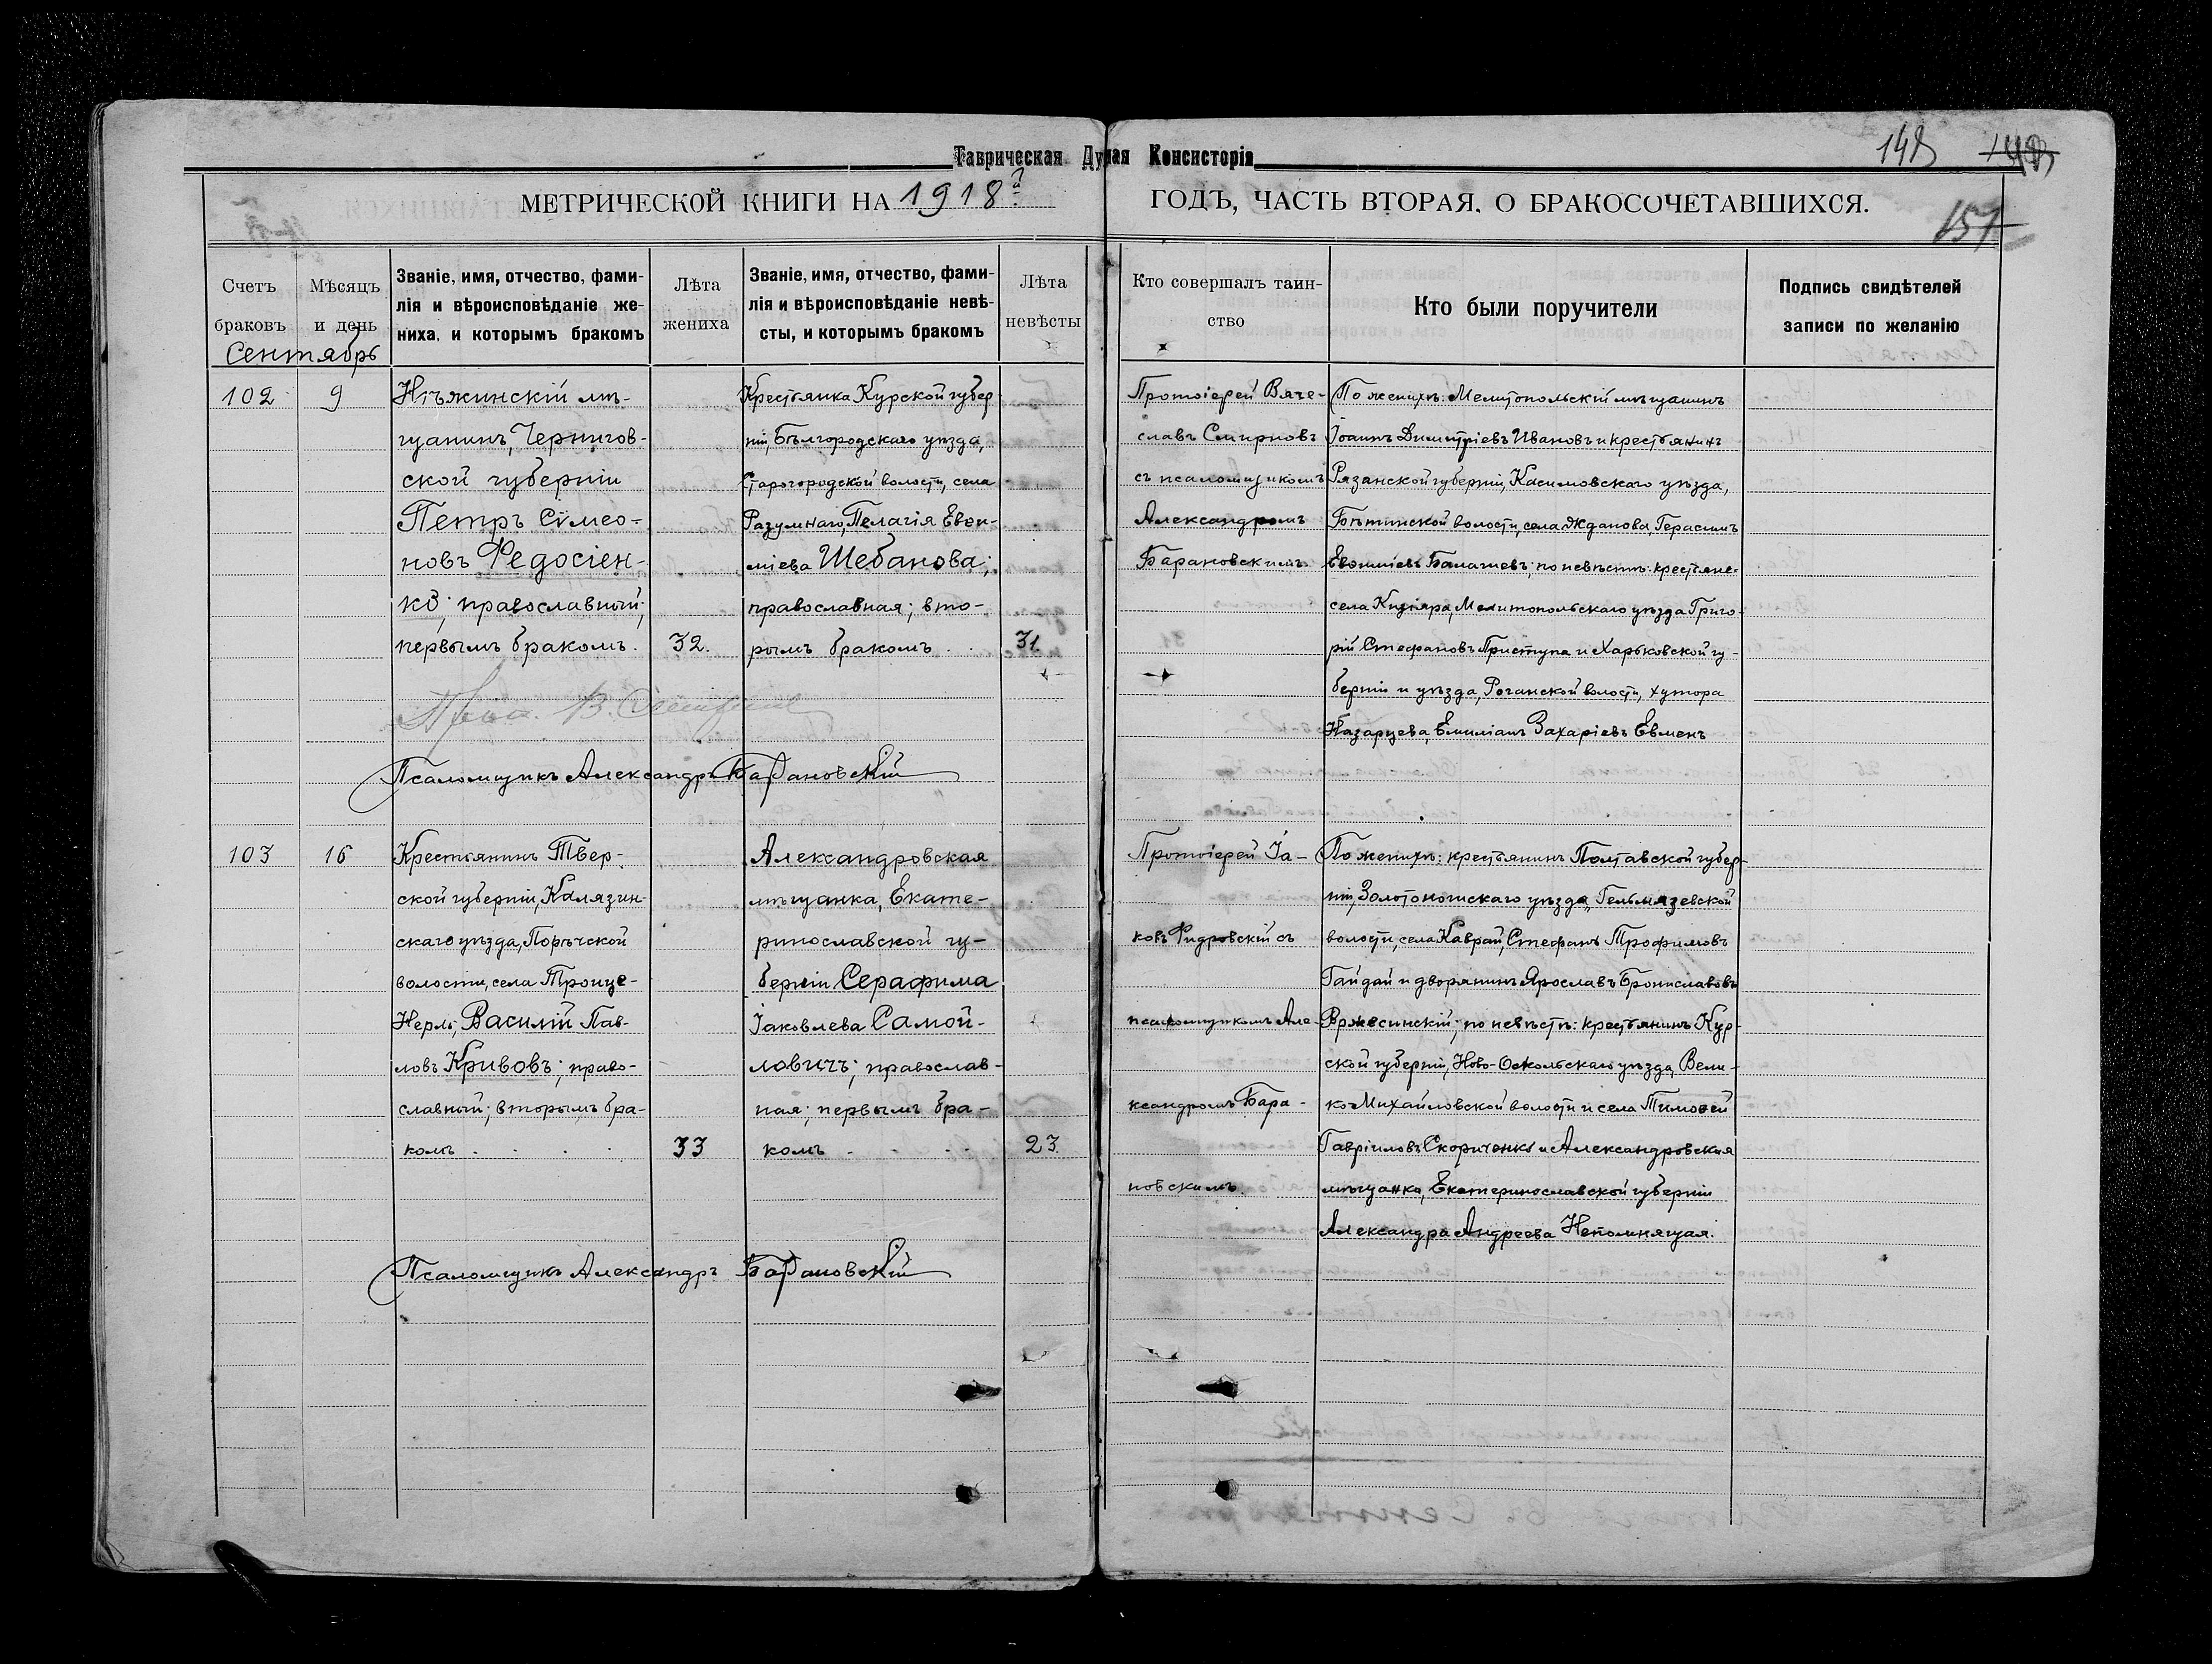 Таврическая Духная Консисторія
148
151
МЕТРИЧЕСКОЙ КНИГИ НА 1918й
ГОДЪ, ЧАСТЬ ВТОРАЯ, О БРАКОСОЧЕТАВШИХСЯ.
Счетъ
браковъ
Мѣсяцъ
и день
Званіе, имя, отчество, фами-
лія и вѣроисповѣданіе же-
ниха, и которымъ бракомъ
Лѣта
жениха
Званіе, имя, отчество, фами-
лія и вѣроисповѣданіе невѣ-
сты, и которымъ бракомъ
Лѣта
невѣсты
Кто совершалъ таин-
ство
Кто были поручители
Подпись свидѣтелей
записи по желанію
Сентябрь
102
9
Нѣжинскій мѣ-
щанинъ, Чернигов-
ской губерніи
Петръ Сѵмео-
новъ Федосіен-
ко; православный;
первымъ бракомъ.
32.
Крестьянка Курской губер-
ніи, Бѣлгородскаго уѣзда,
Старогородской волости, села
Разумнаго, Пелагія Евѳи-
міева Шебанова;
православная; вто-
рымъ бракомъ . .
31.
Протоіерей Вяче-
славъ Смирновъ
съ псаломщикомъ
Александромъ
Барановскимъ
По женихѣ: Мелитопольскій мѣщанинъ
Іоаннъ Димитріевъ Ивановъ и крестьянинъ
Рязанской губерніи, Касимовскаго уѣзда,
волости, села Жданова, Герасимъ
Евѳиміевъ Балашевъ; по невѣстѣ: крестьяне-
села Кизіяра, Мелитопольскаго уѣзда Григо-
рій Стефановъ Приступа и Харьковской гу-
берніи и уѣзда, Роганской волости, хутора
Назарцева, Емиліанъ Захаріевъ Евмень
Прот. В. Смирновъ
Псаломщикъ Александръ Барановскій
103
16
Крестьянинъ Твер-
ской губерніи, Калязин-
скаго уѣзда, Порѣчской
волости, села Троице-
Нерль, Василій Пав-
ловъ Кривовъ; право-
славный; вторымъ бра-
комъ . . . .
33
Александровская
мѣщанка, Екате-
ринославской гу-
берніи Серафима
Іаковлева Самой-
ловичъ; православ-
ная; первымъ бра-
комъ . . . .
23.
Протоіерей Іа-
ковъ Фидровскій съ
псаломщикомъ Але-
ксандромъ Бара-
новскимъ.
По женихѣ: крестьянинъ Полтавской губер-
ніи, Золотоношскаго уѣзда, Гельмязевской
волости, села Каврай, Стефанъ Трофимовъ
Гайдай и дворянинъ Ярославъ Брониславовъ
Вржесинскій; по невѣстѣ: крестьянинъ Кур-
ской губерніи, Ново-Оскольскаго уѣзда, Вели-
ко-Михайловской волости и села Тимоѳей
Гавріиловъ Скориченко и Александровская
мѣщанка, Екатеринославской губерніи
Александра Андреева Непомнящая.
Псаломщикъ Александръ Барановскій